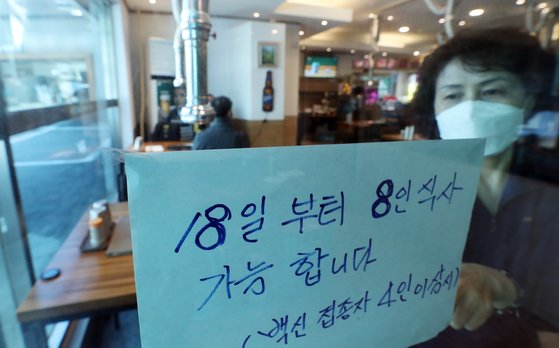 18일 부터 8인 식사
가능 합니다
(백신 접종자 4인이상시)